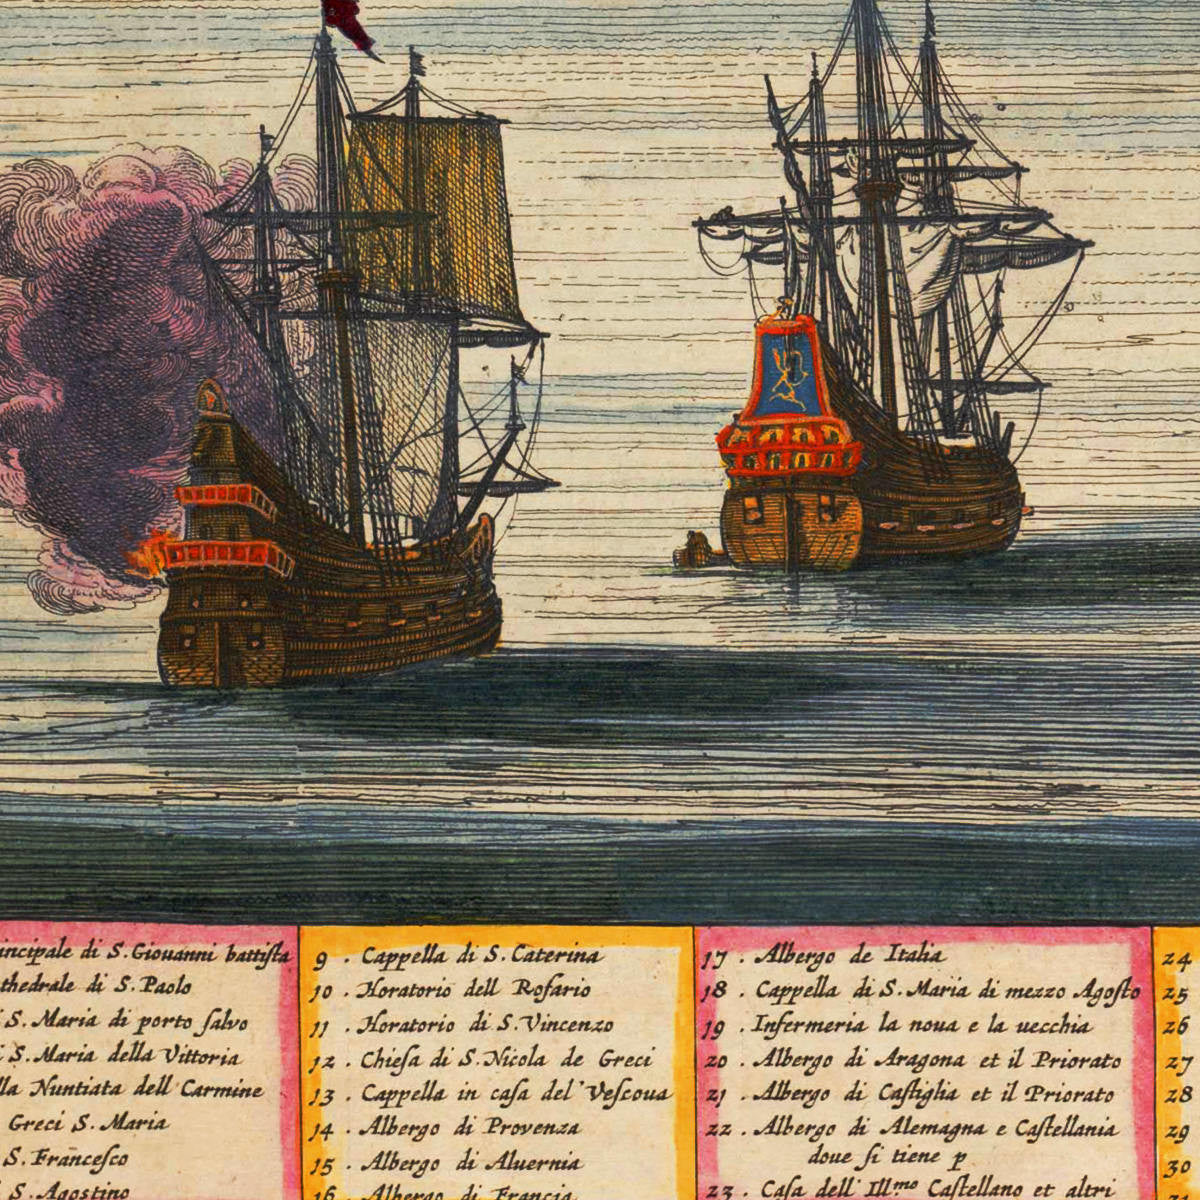 incipale di S. Giouanni battiſta
thedrale di S. Paolo
S. Maria di porto ſalvo
S. Maria della Vittoria
lla Nuntiata dell Carmine
Greci S. Maria
S. Franceſco
S. Agostino
9 . Cappella di S. Caterina
10 . Horatorio dell Roſario
11 . Horatorio di S. Vincenzo
12 . Chieſa di S. Nicola de Greci
13 . Cappella in caſa del' Veſcoua
14 . Albergo di Provenza
15 . Albergo di Aluernia
16 . Albergo di Francia
17 . Albergo de Italia
18 . Cappella di S. Maria di mezzo Agoſto
19 . Infermeria la noua e la uecchia
20 . Albergo di Aragona et il Priorato
21 . Albergo di Caſtiglia et il Priorato
22 . Albergo di Alemagna e Caſtellania
doue ſi tiene p
23 . Caſa dell' Ill.mo Caſtellano et altri
24
25
26
27
28
29
30